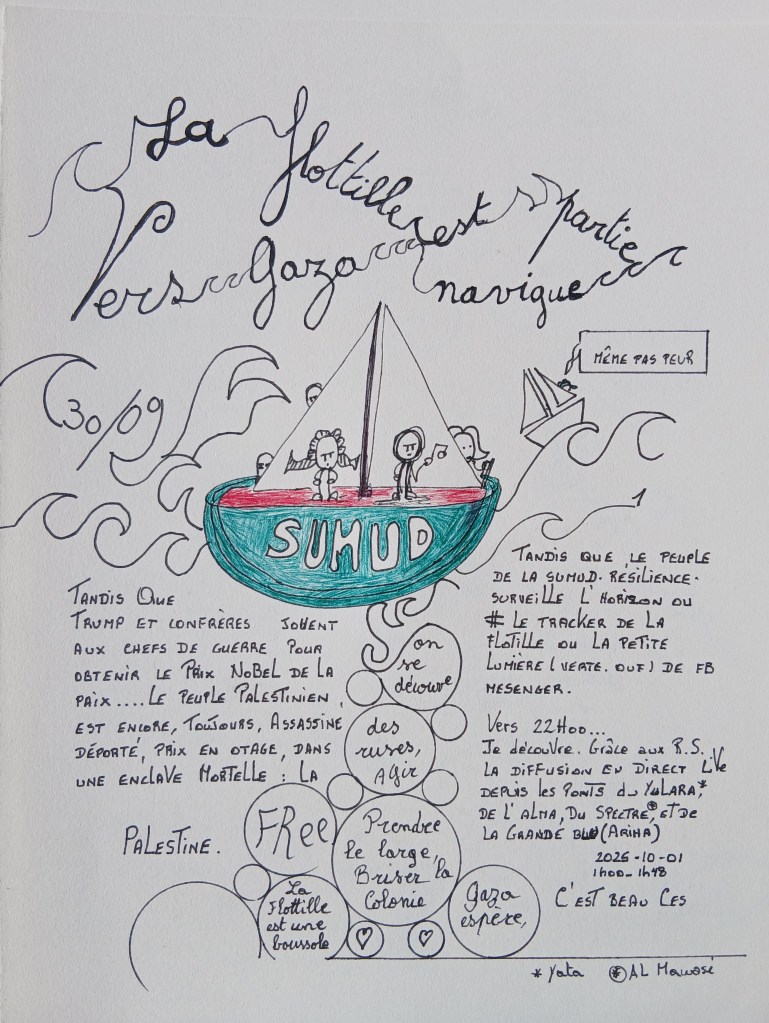 La flottille est partie
Vers Gaza navigue
MÊME PAS PEUR
30/09
SUMUD
1
TANDIS QUE
TRUMP ET CONFRÈRES JOUENT
AUX CHEFS DE GUERRE POUR
OBTENIR LE PRIX NOBEL DE LA
PAIX.... LE PEUPLE PALESTINIEN,
EST ENCORE, TOUJOURS, ASSASSINE
DÉPORTÉ, PRIX EN OTAGE, DANS
UNE ENCLAVE MORTELLE : LA
PALESTINE.
on
se
découvre
des
ruses,
AGIR
FREE
Prendre
le large,
Briser la
Colonie
La
Flottille
est une
boussole
Gaza
espère,
TANDIS QUE LE PEUPLE
DE LA SUMUD. RÉSILIENCE.
SURVEILLE L'HORIZON OU
# LE TRACKER DE LA
FLOTILLE OU LA PETITE
LUMIÈRE (VERTE. OUF) DE FB
MESENGER.
Vers 22H00...
Je découvre. Grâce aux R.S.
LA DIFFUSION EN DIRECT LiVe
DEPUIS LES PONTS du YULARA,*
DE L'ALMA, DU SPECTRE,⊛ ET DE
LA GRANDE (ARIHA)
2025-10-01
1h00-1h48
C'EST BEAU CES
* Yata ⊛ AL Mawasi